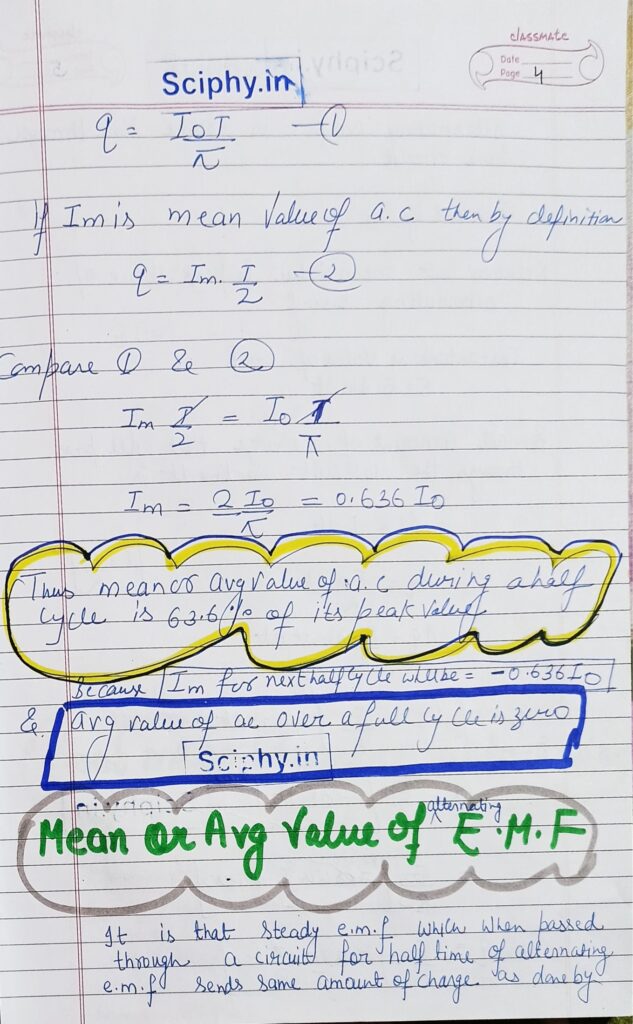 classmate
Date
Page 4
Sciphy.in
q = I0T/π —①
If Im is mean value of a.c then by definition
q = Im. T/2 —②
Compare ① & ②
Im T/2 = I0 T/π
Im = 2 I0/π = 0.636 I0
Thus mean or avg value of a.c during a half
cycle is 63.6% of its peak value.
because Im for next half cycle will be = -0.636 I0
& avg value of ac over a full cycle is zero
Sciphy.in
Mean or Avg Value of alternating E.M.F
It is that steady e.m.f which when passed
through a circuit for half time of alternating
e.m.f sends same amount of charge as done by